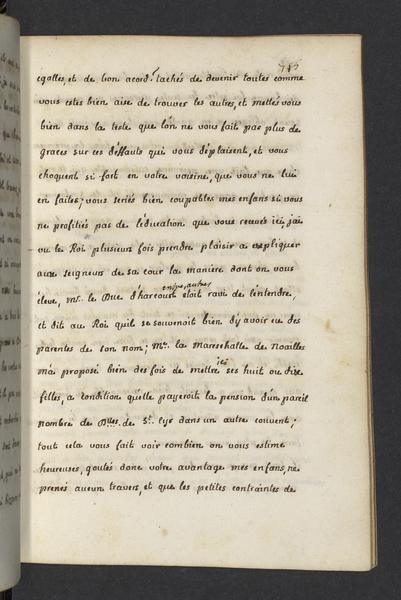 712
egalles, et de bon acord. tachés de devenir toutes comme
vous estes bien aise de trouver les autres, et mettés vous
bien dans la teste que l'on ne vous fait pas plus de
graces sur ces deffauts qui vous déplaisent, et vous
choquent si fort en votre voisine, que vous ne lui
en faites; vous seriés bien coupables mes enfans si vous
ne profitiés pas de l'éducation que vous recevés ici, j'ai
vu le Roi plusieurs fois prendre plaisir a expliquer
aux seigneurs de sa cour la maniere dont on vous
éleve, mr. le Duc d'harcourt entre autres étoit ravi de l'entendre,
et dit au Roi qu'il se souvenoit bien d'y avoir eu des
parentes de son nom; Me. la mareschalle de Noailles
m'a proposé bien des fois de mettre ici ses huit ou dix
filles, a condition qu'elle payeroit la pension d'un pareil
nombre de Dlles. de St. Cyr dans un autre couvent;
tout cela vous fait voir combien on vous estime
heureuses, goutés donc votre avantage mes enfans, ne
prenés aucun travers, et que les petites contraintes de